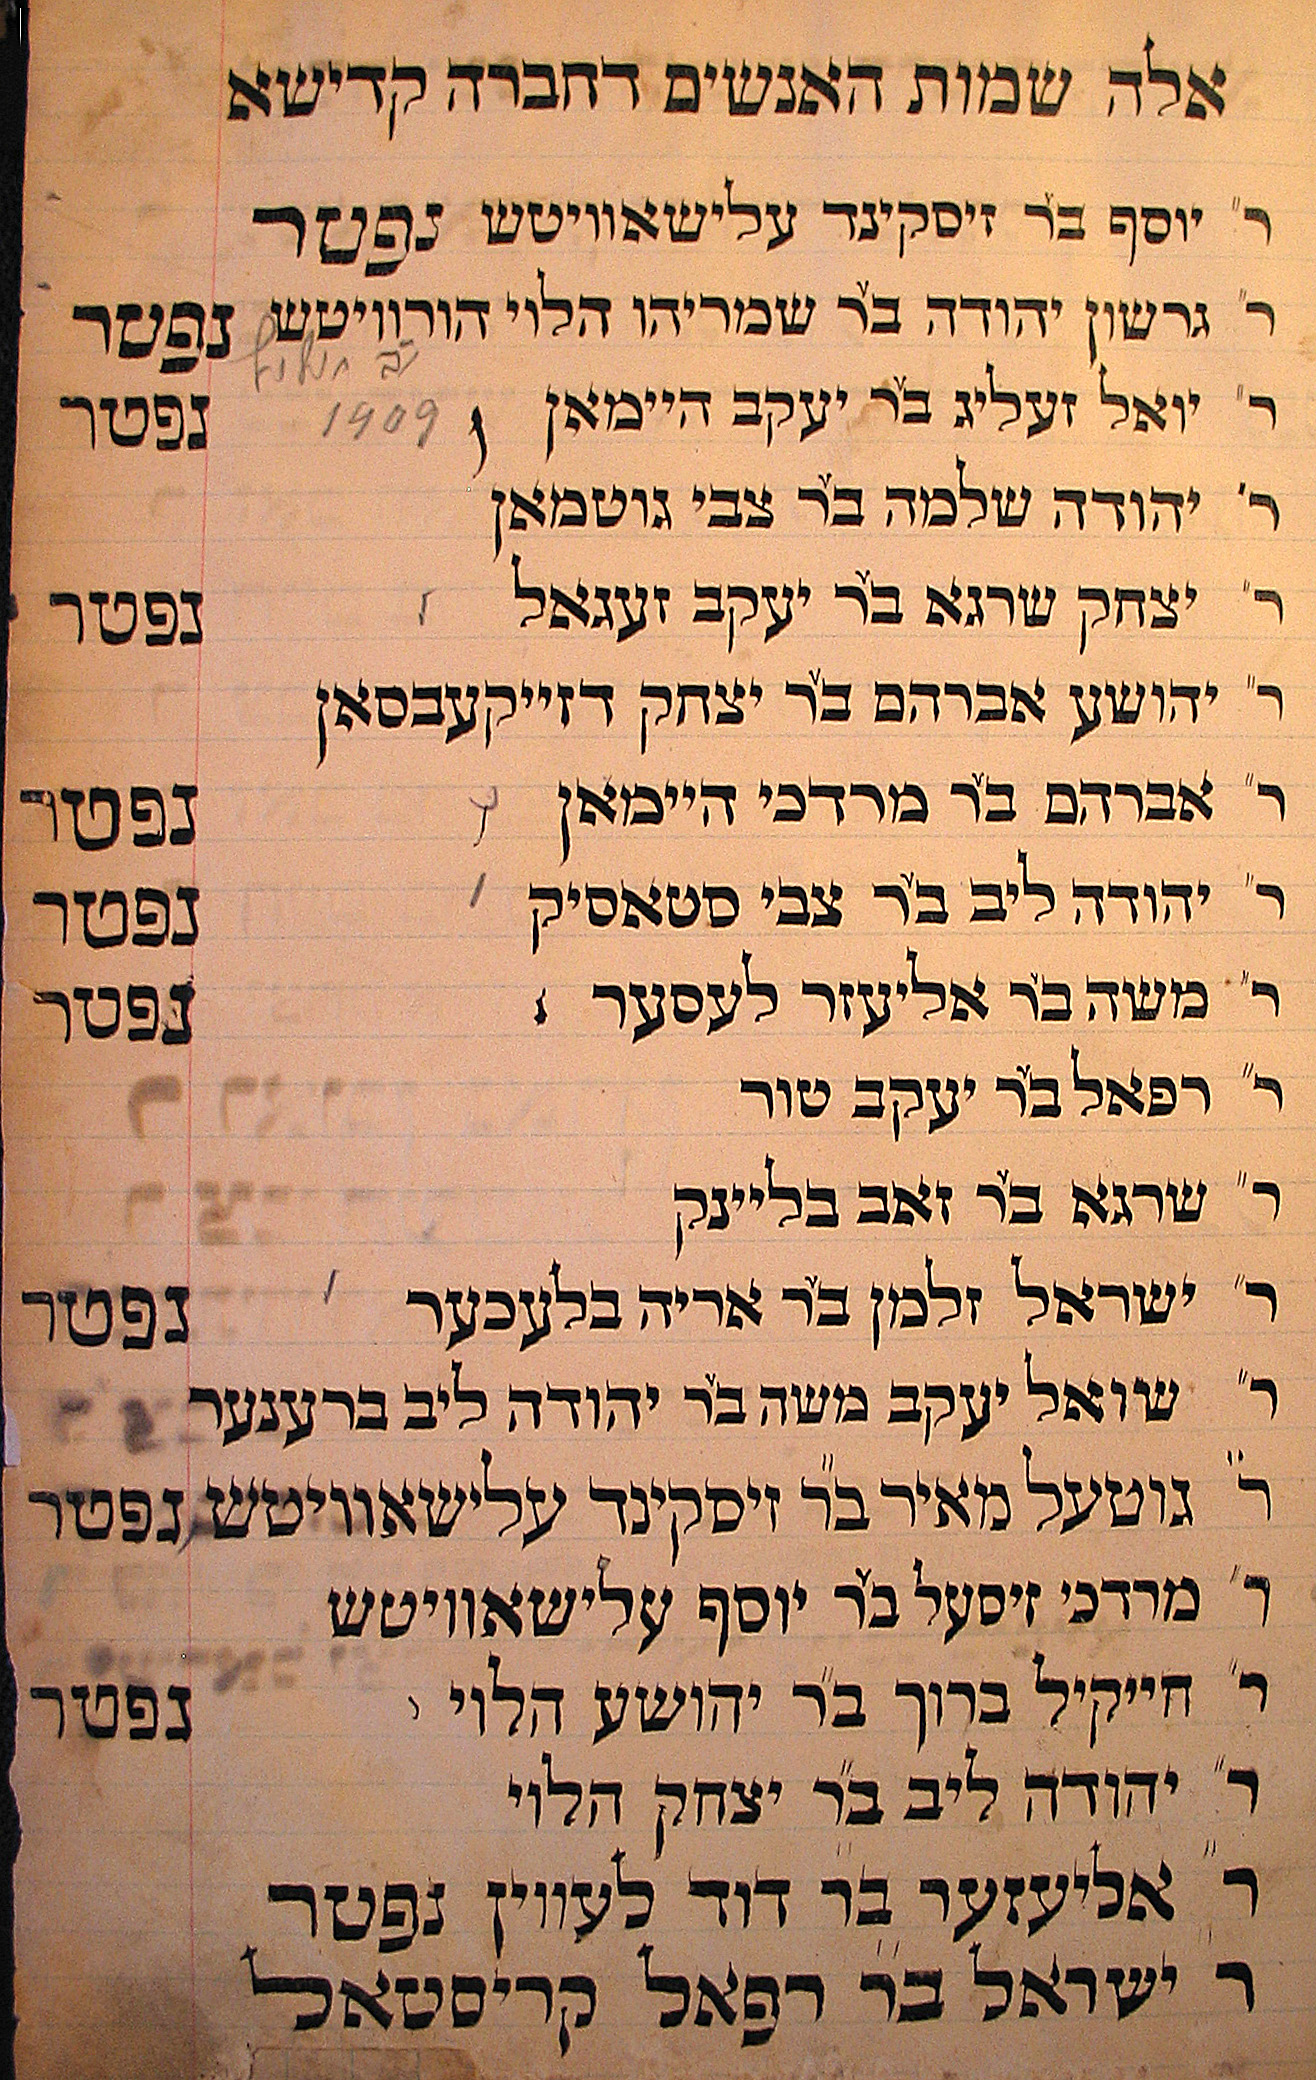 אלה שמות האנשים דחברה קדישא
ר" יוסף ב"ר זיסקינד עלישאוויטש נפטר
ר" גרשון יהודה ב"ר שמריהו הלוי הורוויטש נפטר
ר" יואל זעליג ב"ר יעקב היימאן 1909 נפטר
ר' יהודה שלמה ב"ר צבי גוטמאן
ר" יצחק שרגא ב"ר יעקב זעגאל נפטר
ר" יהושע אברהם ב"ר יצחק דזייקעבסאן
ר" אברהם ב"ר מרדכי היימאן נפטר
ר" יהודה ליב ב"ר צבי סטאסיק נפטר
ר" משה ב"ר אליעזר לעסער נפטר
ר" רפאל ב"ר יעקב טור
ר" שרגא ב"ר זאב בליינק
ר" ישראל זלמן ב"ר אריה בלעכער נפטר
ר" שואל יעקב משה ב"ר יהודה ליב ברענער
ר" גוטעל מאיר ב"ר זיסקינד עלישאוויטש נפטר
ר" מרדכי זיסעל ב"ר יוסף עלישאוויטש
ר" חייקיל ברוך ב"ר יהושע הלוי נפטר
ר" יהודה ליב ב"ר יצחק הלוי
ר" אליעזער ב"ר דוד לעווין נפטר
ר" ישראל ב"ר רפאל קריסטאל